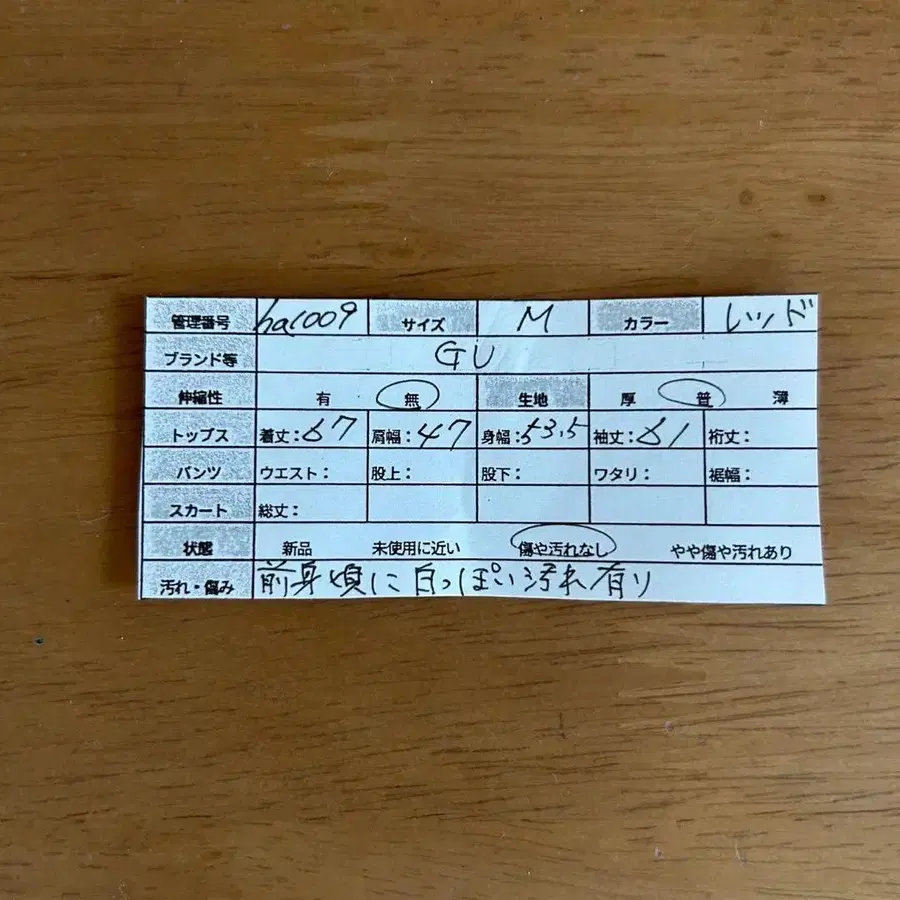 管理番号 hac009 サイズ M カラー レッド
ブランド等 GU
伸縮性 有 無 生地 厚 普 薄
トップス 着丈:67 肩幅:47 身幅:53.5 袖丈:61 裄丈:
パンツ ウエスト: 股上: 股下: ワタリ: 裾幅:
スカート 総丈:
状態 新品 未使用に近い 傷や汚れなし やや傷や汚れあり
汚れ・傷み 前身頃に白っぽい汚れ有り